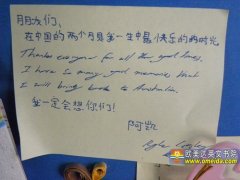 朋友们,
在中国的两个月是我一生中最快乐的时光
Thanks everyone for all the good times,
I have so many good memories that
I will bring back to Australia.
我一定会想你们!
阿凯
欧美达英文书院
www.omeida.cn